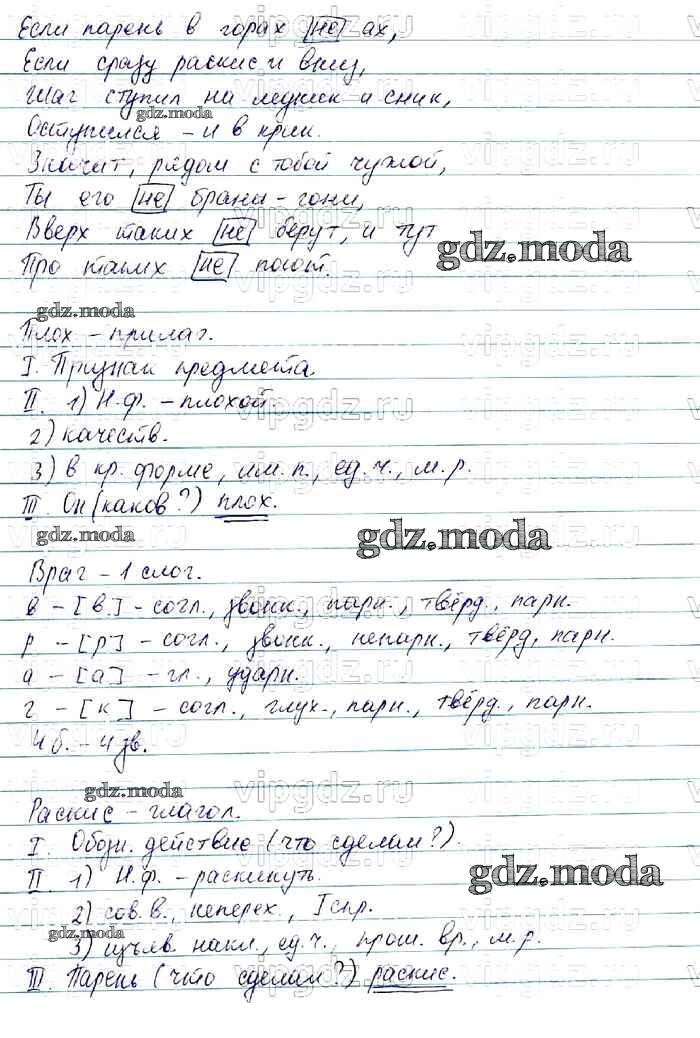 Если парень в горах не ах,
Если сразу раскис и вниз,
Шаг ступил на ледник и сник,
gdz.moda
Оступился – и в крик.
Значит, рядом с тобой чужой,
Ты его не брани – гони,
Вверх таких не берут, и тут
gdz.moda
Про таких не поют.
gdz.moda
Плох – прилаг.
I. Признак предмета
II. 1) Н.ф. – плохой.
2) качеств.
3) в кр. форме, им.п., ед.ч., м.р.
III. Он (каков?) плох.
gdz.moda
gdz.moda
Враг – 1 слог.
в – [в] – согл., звонк., парн., твёрд., парн.
р – [р] – согл., звонк., непарн., твёрд, парн.
а – [а] – гл., ударн.
г – [к] – согл., глух., парн., твёрд., парн.
4 б. – 4 зв.
gdz.moda
Раскис – глагол.
I. Обозн. действие (что сделал?).
II. 1) Н.ф. – раскинуть.
gdz.moda
2) сов.в., неперех., I спр.
gdz.moda
3) изъяв. накл., ед.ч., прош. вр., м.р.
III. Парень (что сделал?) раскис.
vipgdz.ru